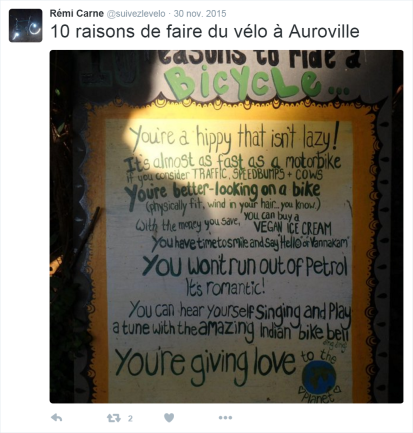 Rémi Carne @suivezlevelo · 30 nov. 2015
10 raisons de faire du vélo à Auroville
easons to ride a
BICYCLE...
You're a hippy that isn't lazy!
It's almost as fast as a motorbike
if you consider TRAFFIC, SPEEDBUMPS + COWS
You're better-looking on a bike
(physically fit, wind in your hair.. you know)
With the money you save, you can buy a
VEGAN ICE CREAM
You have time to smile and say "Hello" or Vannakam"
YOU WON'T RUN OUT OF PETROL
It's romantic!
You can hear yourself Singing and Play
a tune with the amazing Indian bike bell
You're giving love to the
Planet
2